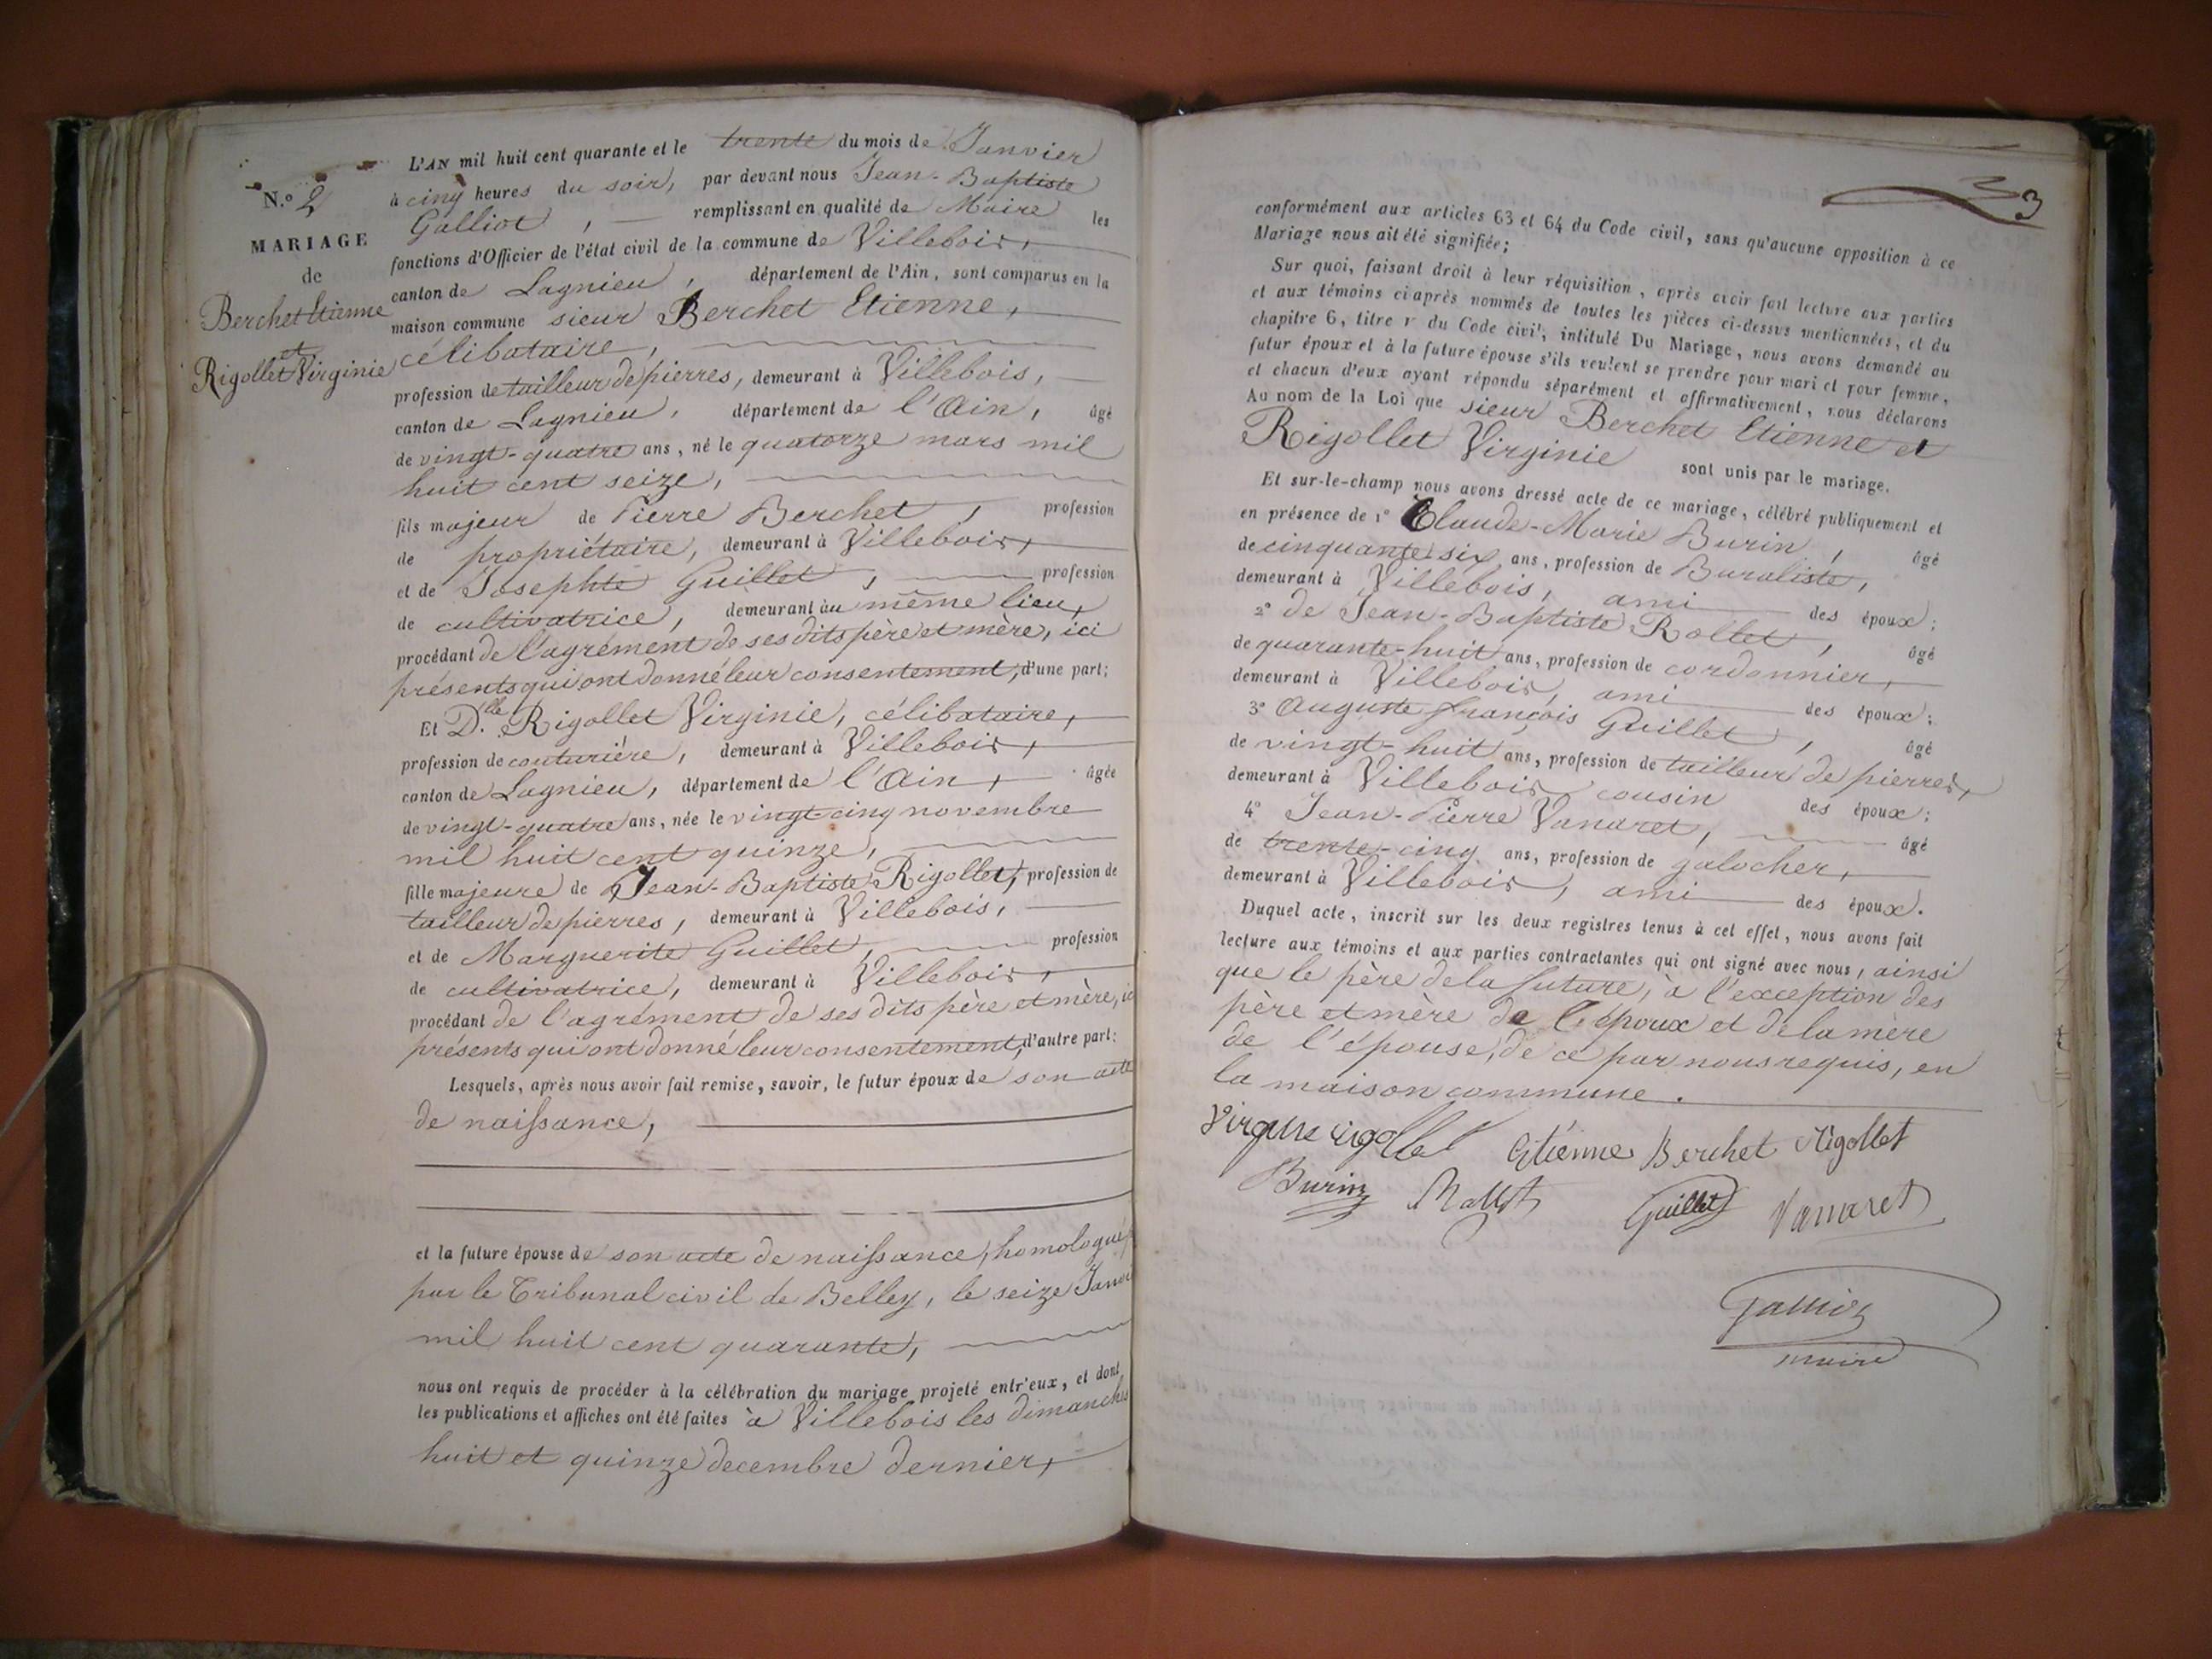 N.º 2
MARIAGE
de
Berchet Etienne
et
Rigollet Virginie
L'AN mil huit cent quarante et le trente du mois de Janvier
à cinq heures du soir, par devant nous Jean-Baptiste
Galliot, remplissant en qualité de Maire les
fonctions d'Officier de l'état civil de la commune de Villebois,
canton de Lagnieu, département de l'Ain, sont comparus en la
maison commune sieur Berchet Etienne,
célibataire,
profession de tailleur de pierres, demeurant à Villebois,
canton de Lagnieu, département de l'Ain, âgé
de vingt-quatre ans, né le quatorze mars mil
huit cent seize,
fils majeur de Pierre Berchet, profession
de propriétaire, demeurant à Villebois,
et de Josephte Guillet, profession
de cultivatrice, demeurant àu même lieu,
procédant de l'agrément de ses dits père et mère, ici
présents qui ont donné leur consentement, d'une part;
Et D.lle Rigollet Virginie, célibataire,
profession de couturière, demeurant à Villebois,
canton de Lagnieu, département de l'Ain, âgée
de vingt-quatre ans, née le vingt-cinq novembre
mil huit cent quinze,
fille majeure de Jean-Baptiste Rigollet, profession de
tailleur de pierres, demeurant à Villebois,
et de Marguerite Guillet, profession
de cultivatrice, demeurant à Villebois,
procédant de l'agrément de ses dits père et mère, ici
présents qui ont donné leur consentement, d'autre part:
Lesquels, après nous avoir fait remise, savoir, le futur époux de son acte
de naissance,
et la future épouse de son acte de naissance, homologué
par le Tribunal civil de Belley, le seize Janvi
mil huit cent quarante,
nous ont requis de procéder à la célébration du mariage projeté entr'eux, et dont
les publications et affiches ont été faites à Villebois les dimanches
huit et quinze decembre dernier,
3
conformément aux articles 63 et 64 du Code civil, sans qu'aucune opposition à ce
Mariage nous ait été signifiée;
Sur quoi, faisant droit à leur réquisition, après avoir fait lecture aux parties
et aux témoins ci après nommés de toutes les pièces ci-dessus mentionnées, et du
chapitre 6, titre v du Code civil, intitulé Du Mariage, nous avons demandé au
futur époux et à la future épouse s'ils veulent se prendre pour mari et pour femme,
et chacun d'eux ayant répondu séparément et affirmativement, nous déclarons
Au nom de la Loi que sieur Berchet Etienne et
Rigollet Virginie sont unis par le mariage.
Et sur-le-champ nous avons dressé acte de ce mariage, célébré publiquement et
en présence de 1º Claude-Marie Burin, âgé
de cinquante six ans, profession de Buraliste,
demeurant à Villebois, ami des époux;
2º de Jean-Baptiste Rollet, âgé
de quarante-huit ans, profession de cordonnier,
demeurant à Villebois, ami des époux;
3º Auguste françois Guillet, âgé
de vingt-huit ans, profession de tailleur de pierres,
demeurant à Villebois, cousin des époux;
4º Jean-Pierre Vanaret, âgé
de trente-cinq ans, profession de galocher,
demeurant à Villebois, ami des époux.
Duquel acte, inscrit sur les deux registres tenus à cet effet, nous avons fait
lecture aux témoins et aux parties contractantes qui ont signé avec nous, ainsi
que le père de la future, à l'exception des
père et mère de l'époux et de la mère
de l'épouse, de ce par nous requis, en
la maison commune.
Virginie rigollet Etienne Berchet Rigollet
Burin Rollet Guillet Vanaret
Galliot
maire